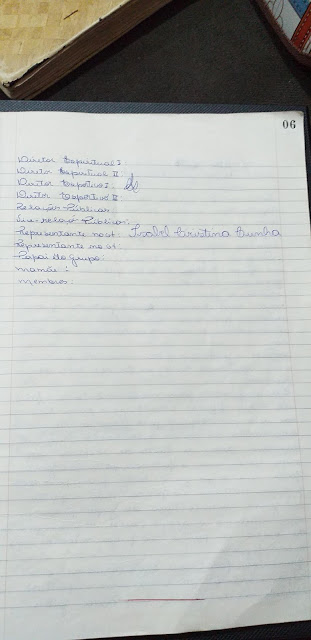 06
Diretor Espiritual I:
Diretor Espiritual II:
Diretor Esportivo I:
Diretor Esportivo II
Relações Públicas
Vice-relaçõ Públicas:
Representante no st: Izabel Cristina Cunha
Representante no st:
Papai do grupo:
mamãe:
membros: